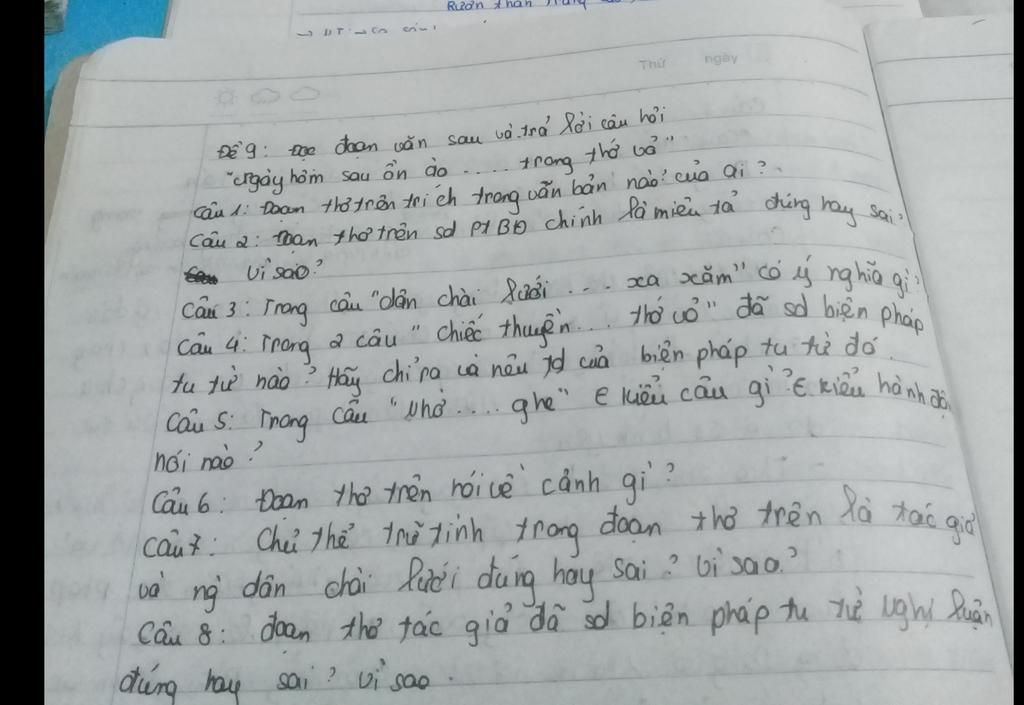 Rườn thân trắng
Thứ ngày
Đề 9: Đọc đoạn văn sau và trả lời câu hỏi
"Ngày hôm sau ồn ào .... trong thớ vỏ"
Câu 1: Đoạn thơ trên trích trong văn bản nào? của ai?
Câu 2: Đoan thơ trên sd PTBĐ chính là miêu tả đúng hay sai?
vì sao?
Câu 3: Trong câu "dân chài lưới ... xa xăm" có ý nghĩa gì?
Câu 4: Trong 2 câu "chiếc thuyền... thớ vỏ" đã sd biện pháp
tu từ nào? Hãy chỉ ra và nêu td của biện pháp tu từ đó.
Câu 5: Trong câu "Nhờ .... ghe" ∈ kiểu câu gì? ∈ kiểu hành độ
nói nào?
Câu 6: Đoạn thơ trên nói về cảnh gì?
Câu 7: Chủ thể trữ tình trong đoạn thơ trên là tác giả
và ng dân chài lưới đúng hay sai? Vì sao?
Câu 8: đoạn thơ tác giả đã sd biện pháp tu từ nghị luận
đúng hay sai? vì sao.